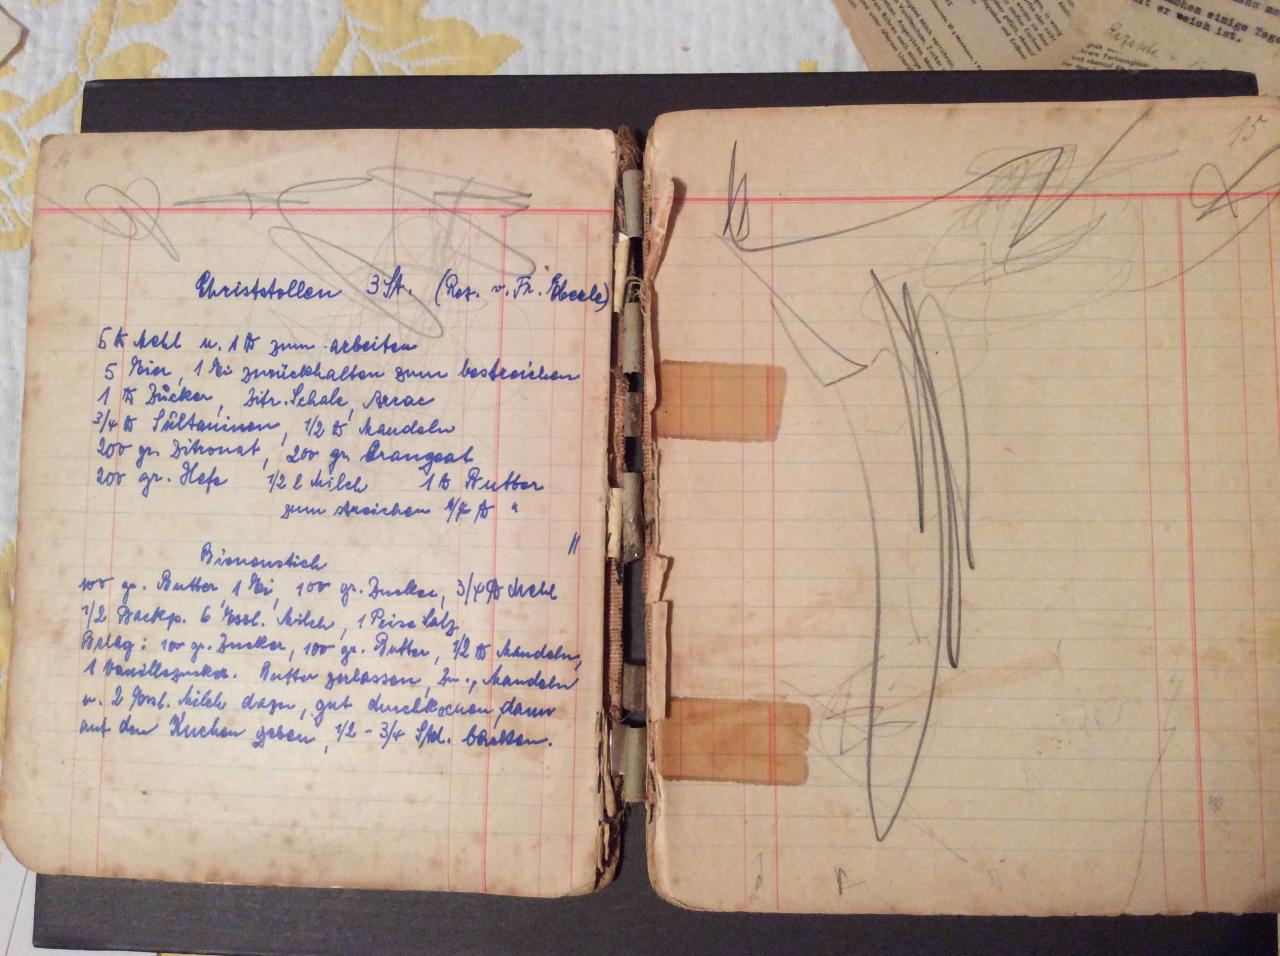 14
Christstollen 3 St. (Rez. v. Fr. Eberle)
5 ℔ Mehl u. 1 ℔ zum arbeiten
5 Eier, 1 Ei zurückhalten zum bestreichen
1 ℔ Zucker, Zitr. Schale, Arrac
3/4 ℔ Sultaninen, 1/2 ℔ Mandeln
200 gr. Zitronat, 200 gr. Orangeat
200 gr. Hefe 1/2 l Milch 1 ℔ Butter
zum streichen ℔ "
Bienenstich
100 gr. Butter 1 Ei, 100 gr. Zucker, 3/4 ℔ Mehl
1/2 Backp. 6 Essl. Milch, 1 Prise Salz
Belag: 100 gr. Zucker, 100 gr. Butter, 1/2 ℔ Mandeln,
1 Vanillezucker. Butter zerlassen, Zu., Mandeln
u. 2 Essl. Milch dazu, gut durchkochen, dann
auf den Kuchen geben, 1/2 - 3/4 Std. backen.
15
machen einige Tage
er weich ist.
Rezepte